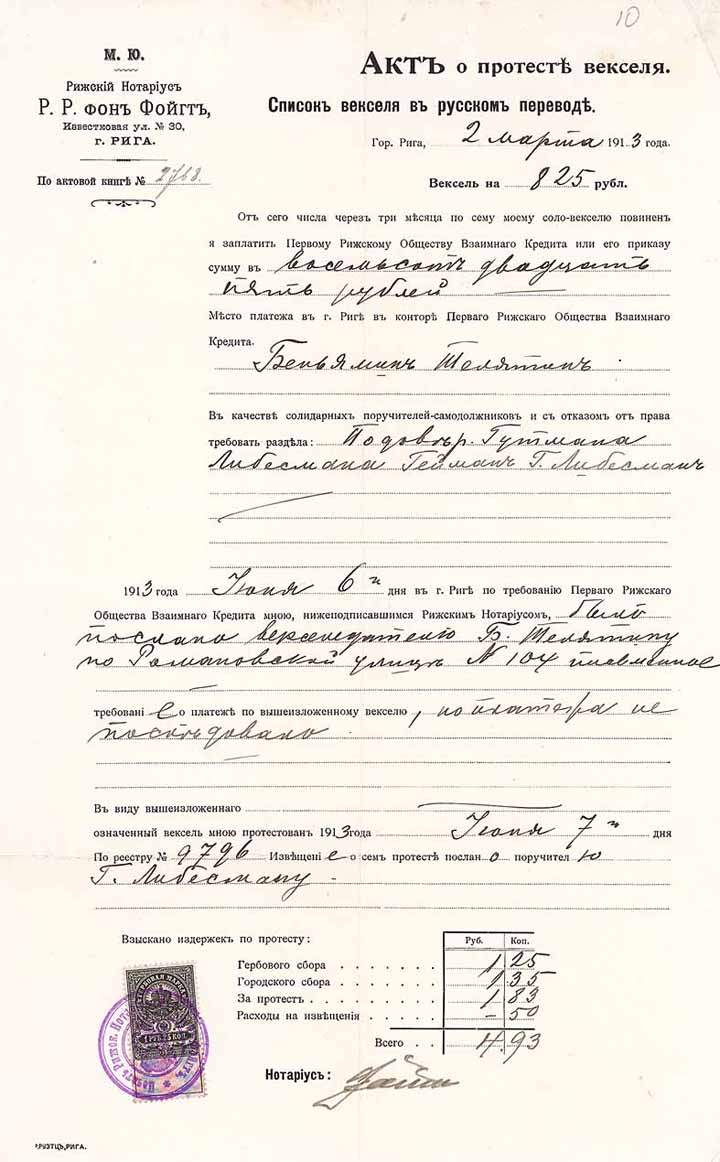 10
М. Ю.
Рижскій Нотаріусъ
Р. Р. ФОНЪ ФОЙГТЪ,
Известковая ул. № 30,
г. РИГА.
По актовой книгѣ № 2768.
АКТЪ о протестѣ векселя.
Списокъ векселя въ русскомъ переводѣ.
Гор. Рига, 2 марта 1913 года.
Вексель на 825 рубл.
Отъ сего числа черезъ три мѣсяца по сему моему соло-векселю повиненъ
я заплатить Первому Рижскому Обществу Взаимнаго Кредита или его приказу
сумму въ восемьсотъ двадцать
пять рублей
Мѣсто платежа въ г. Ригѣ въ конторѣ Перваго Рижскаго Общества Взаимнаго
Кредита.
Беньяминъ Телятинъ.
Въ качествѣ солидарныхъ поручителей-самодолжниковъ и съ отказомъ отъ права
требовать раздѣла: По довѣр. Гутмана
Либесмана Гейманъ Г. Либесманъ
1913 года Іюня 6 дня въ г. Ригѣ по требованію Перваго Рижскаго
Общества Взаимнаго Кредита мною, нижеподписавшимся Рижскимъ Нотаріусомъ, было
послано векселедателю Б. Телятину
по Романовской улицѣ N 104 письменное
требованіе о платежѣ по вышеизложенному векселю, но платежа не
послѣдовало
Въ виду вышеизложеннаго
означенный вексель мною протестованъ 1913 года Іюня 7 дня
По реестру № 9796 Извѣщеніе о семъ протестѣ послано поручителю
Г. Либесману.
Взыскано издержекъ по протесту:
Руб. Коп.
Гербового сбора 1 25
Городского сбора 1 35
За протестъ 1 83
Расходы на извѣщенія - 50
Всего 4.93
Нотаріусъ:
1 РУБ. 25 КОП.
РИГА.